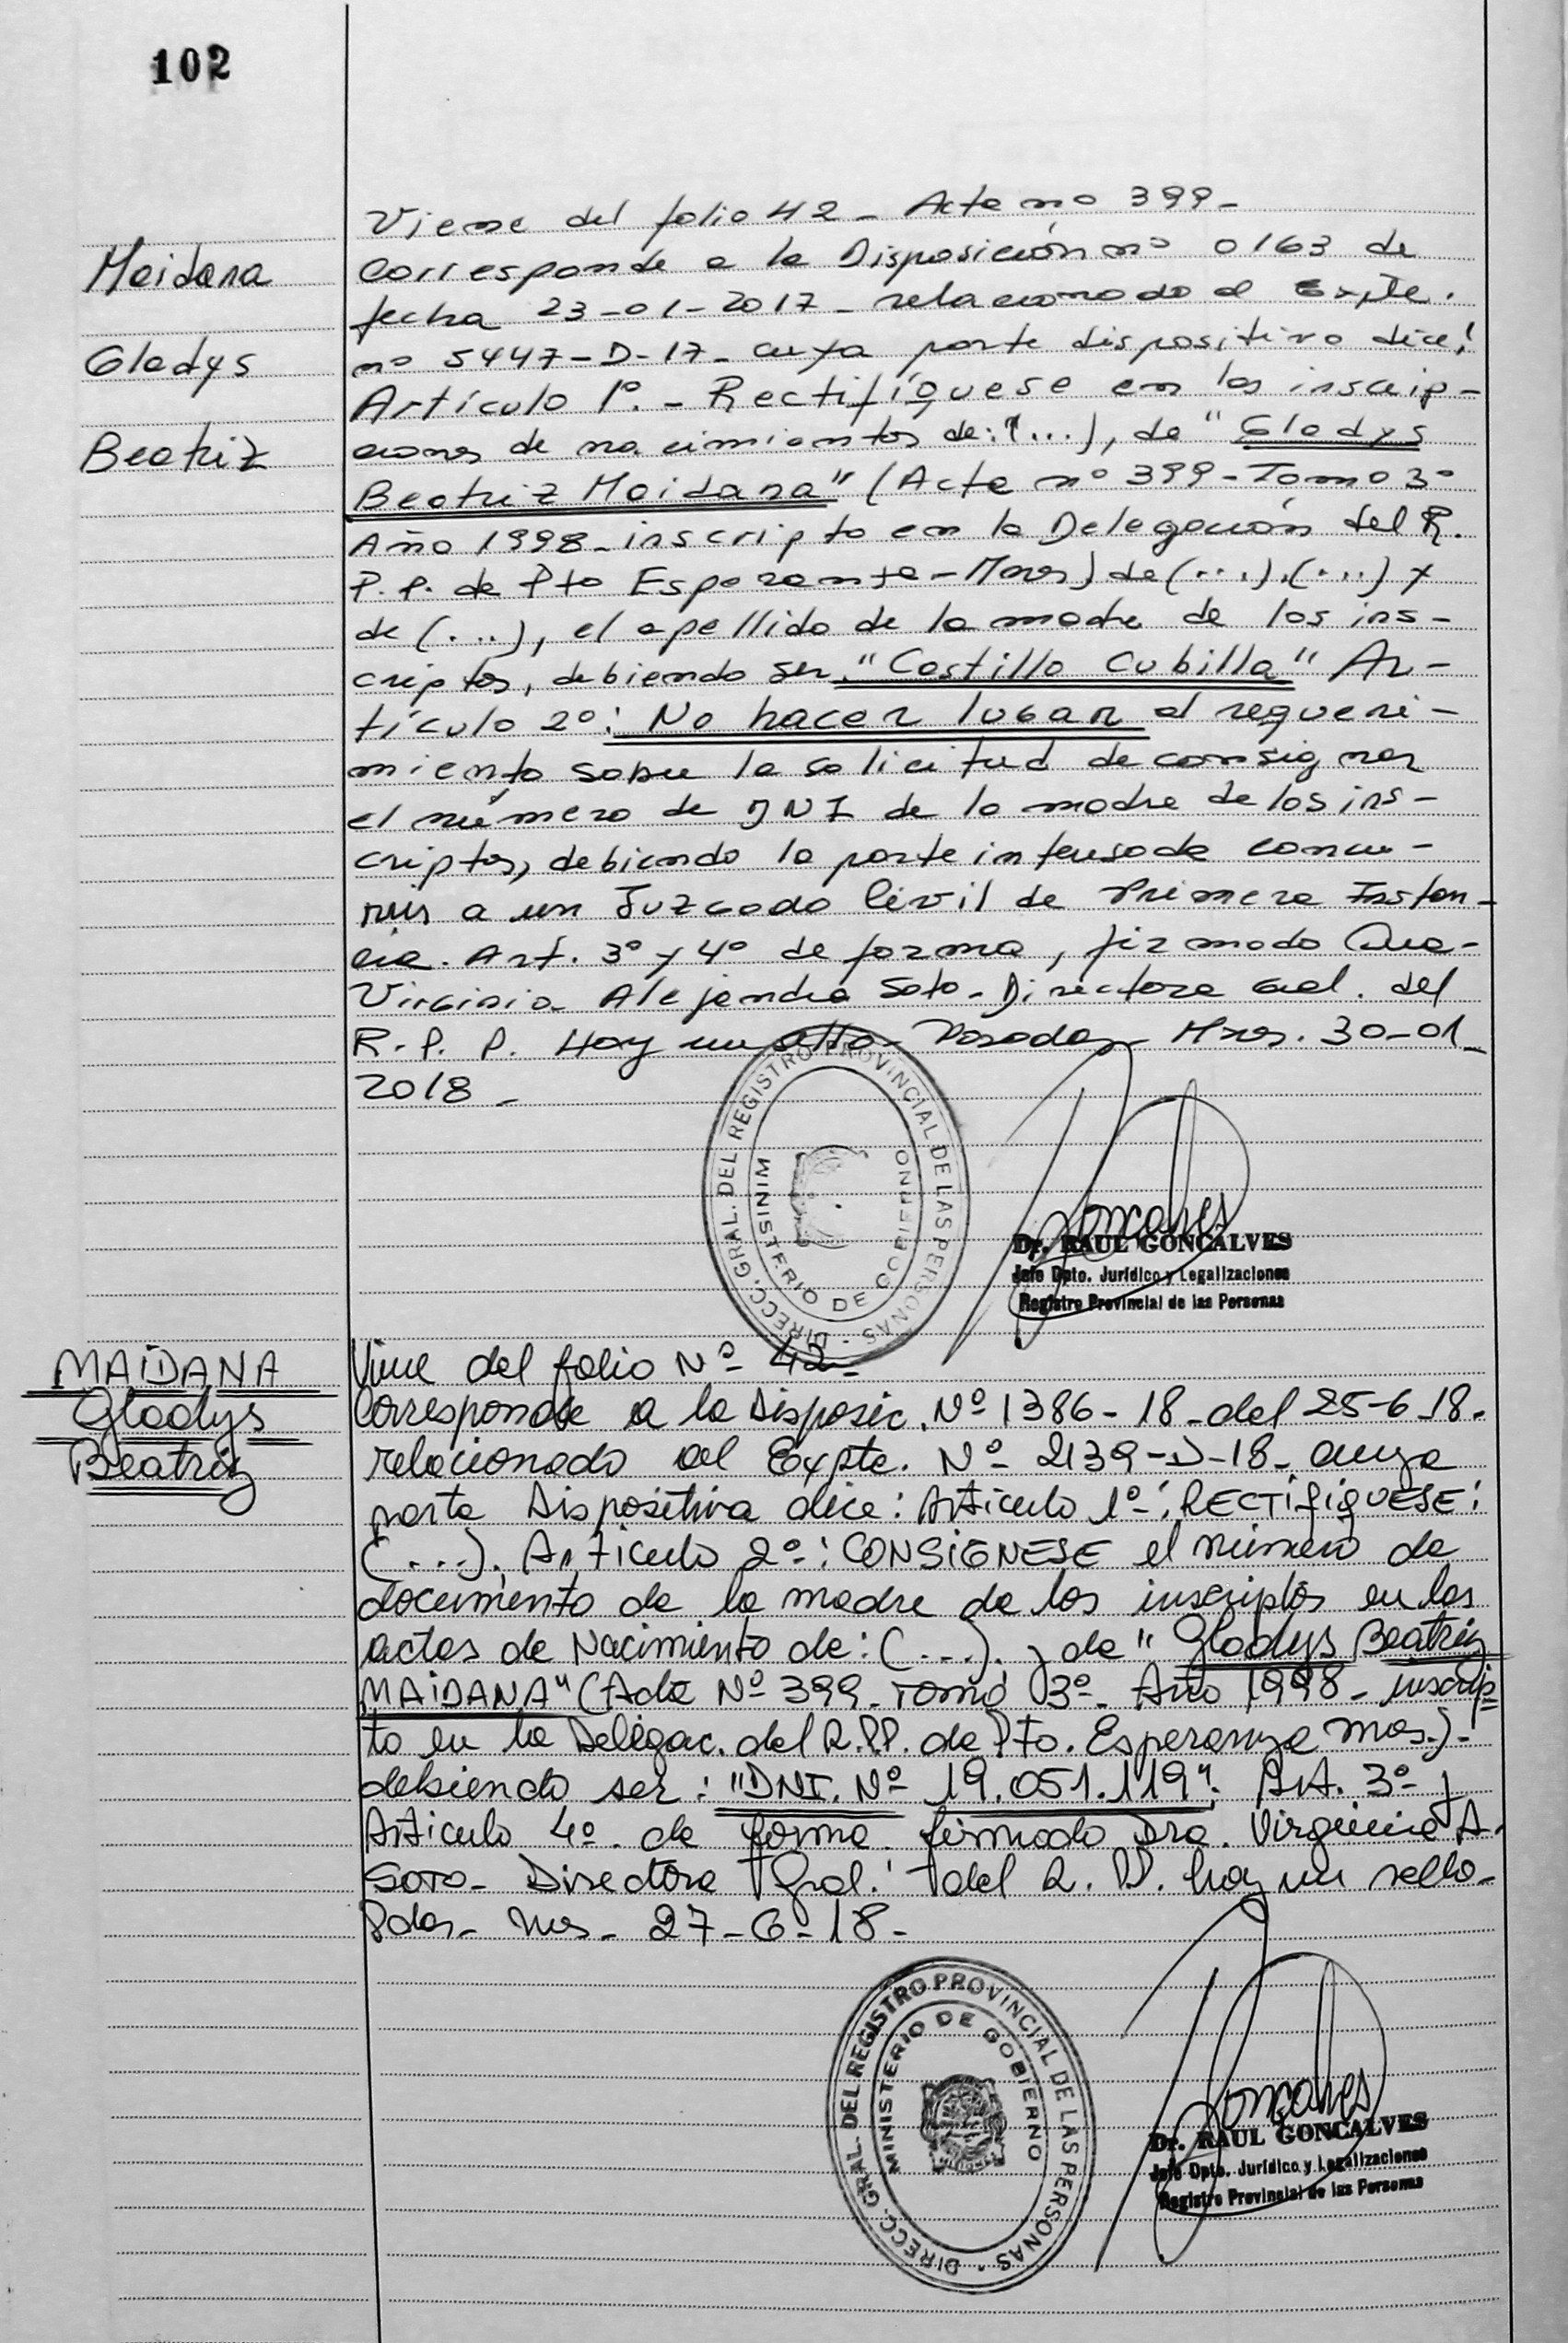 102
Maidana
Gladys
Beatriz
Viene del folio 42 - Acta nº 399 -
Corresponde a la Disposición nº 0163 de
fecha 23-01-2017 - relacionado al Expte.
nº 5447-D-17- cuya parte dispositiva dice:
Artículo 1º. - Rectifíquese en las inscrip-
ciones de nacimientos de: (...), de "Gladys
Beatriz Maidana" (Acta nº 399 - Tomo 3º
Año 1998 - inscripto en la Delegación del R.
P.P. de Pto Esperanza - Mnes) de (...), (...) y
de (...), el apellido de la madre de los ins-
criptos, debiendo ser "Castillo Cubilla" Ar-
tículo 2º: No hacer lugar al requeri-
miento sobre la solicitud de consignar
el número de DNI de la madre de los ins-
criptos, debiendo la parte interesada concu-
rrir a un Juzgado Civil de Primera Instan-
cia. Art. 3º y 4º de forma, firmado
Virginia Alejandra Soto - Directora Gral. del
R. P. P. Hay un sello - Posadas Mnes. 30-01-
2018 -
DIRECC. GRAL. DEL REGISTRO PROVINCIAL DE LAS PERSONAS -
MINISTERIO DE GOBIERNO
Goncalves
Dr. RAUL GONCALVES
Jefe Dpto. Jurídico y Legalizaciones
Registro Provincial de las Personas
MAIDANA
Gladys
Beatriz
Viene del folio Nº 42-
Corresponde a la Disposic. Nº 1386-18-del 25-6-18.
relacionado al Expte. Nº 2139-D-18- cuya
parte Dispositiva dice: Artículo 1º: RECTIFIQUESE:
(...). Artículo 2º: CONSIGNESE el número de
documento de la madre de los inscriptos en las
actas de Nacimiento de: (...). y de "Gladys Beatriz
MAIDANA" (Acta Nº 399 - Tomo 3º - Año 1998 - inscrip-
to en la Delegac. del R.P.P. de Pto. Esperanza Mnes.)-
debiendo ser: "DNI. Nº 19.051.119". Art. 3º y
Artículo 4º. de forma. firmado Dra. Virginia A.
SOTO- Directora Gral. del R. P.P. hay un sello-
Pdas- Mnes- 27-6-18-
DIRECC. GRAL. DEL REGISTRO PROVINCIAL DE LAS PERSONAS -
MINISTERIO DE GOBIERNO
Goncalves
Dr. RAUL GONCALVES
Jefe Dpto. Jurídico y Legalizaciones
Registro Provincial de las Personas